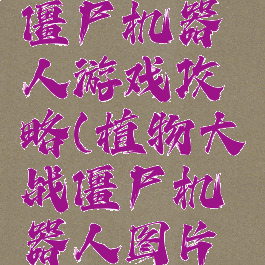 僵尸机器
人游戏攻
略(植物大
战僵尸机
器人图片